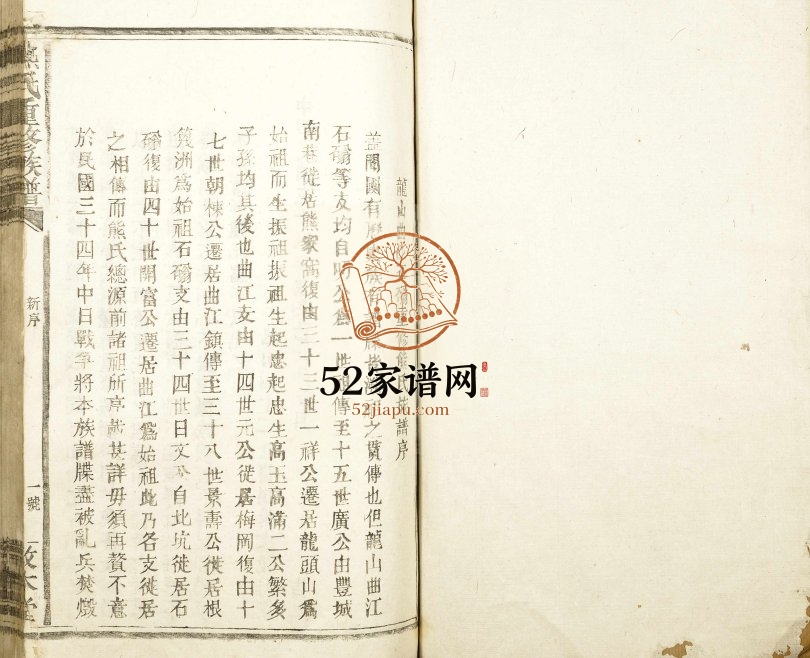 龍山曲 重修熊氏族譜序
蓋聞國有 之貫傳也但龍山曲江
石磵等支均自 公 一世 傳至十五世廣公由豐城
南巷徙居熊家窩復由三十三世一祥公遷居龍頭山爲
始祖而生振祖振祖生起忠起忠生高玉高滿二公繁多
子孫均其後也曲江支由十四世元公徙居梅岡復由十
七世朝棟公遷居曲江鎮傳至三十八世景壽公徙居根
筏洲爲始祖石磵支由三十四世日文公自北坑徙居石
磵復由四十世開富公遷居曲江爲始祖此乃各支徙居
之相傳而熊氏總源前諸祖所序載甚詳毋須再贅不意
於民國三十四年中日戰爭將本族譜牒盡被亂兵焚燬
熊氏重修族譜
新序
一號
敦本堂
52家谱网
52jiapu.com